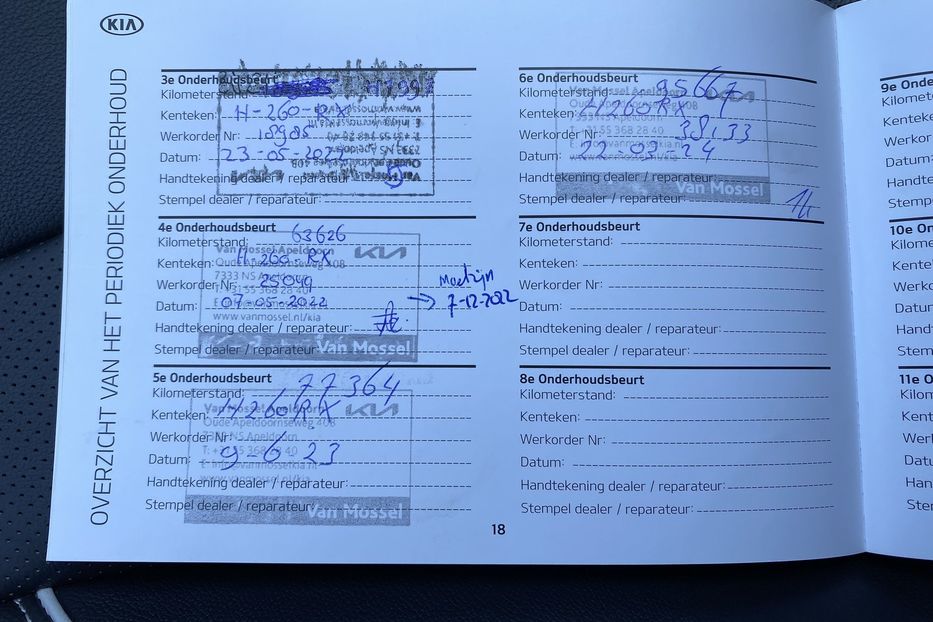 KIA
OVERZICHT VAN HET PERIODIEK ONDERHOUD
3e Onderhoudsbeurt
Kilometerstand:
Kenteken: H-260-RX
Werkorder Nr: 18985
Datum: 23-05-202
Handtekening dealer / reparateur:
Stempel dealer / reparateur:
4e Onderhoudsbeurt
Kilometerstand: 63626
Van Mossel Apeldoorn
Kenteken: H-260-RX
Oude Apeldoornseweg 408
7333 NS Apeldoorn
Werkorder Nr: 25049
T: +31 55 368 28 40
Datum: 07-05-2022
www.vanmossel.nl/kia
Handtekening dealer / reparateur:
Stempel dealer / reparateur:
Van Mossel
KIA
7-12-2022
5e Onderhoudsbeurt
Kilometerstand: 77364
Van Mossel Apeldoorn
KIA
Kenteken: H260RX
Oude Apeldoornseweg 408
Werkorder Nr:
7333 NS Apeldoorn
T: +31 55 368 28 40
Datum: 9-6-23
Handtekening dealer / reparateur:
Stempel dealer / reparateur:
Van Mossel
6e Onderhoudsbeurt
Kilometerstand: 9566
Van Mossel Apeldoorn
KIA
Kenteken: H260RX
Oude Apeldoornseweg 408
7333 NS Apeldoorn
Werkorder Nr: 38133
T: +31 55 368 28 40
Datum: 22-03-24
Handtekening dealer / reparateur:
Van Mossel
Stempel dealer / reparateur:
7e Onderhoudsbeurt
Kilometerstand:
Kenteken:
Werkorder Nr:
Datum:
Handtekening dealer / reparateur:
Stempel dealer / reparateur:
8e Onderhoudsbeurt
Kilometerstand:
Kenteken:
Werkorder Nr:
Datum:
Handtekening dealer / reparateur:
Stempel dealer / reparateur:
18
9e Onderho
Kilomete
Kenteke
Werkor
Datum:
Handte
Stemp
10e On
Kilome
Kente
Werk
Datu
Hand
Stem
11e O
Kilom
Kent
Werl
Datu
Han
Ster